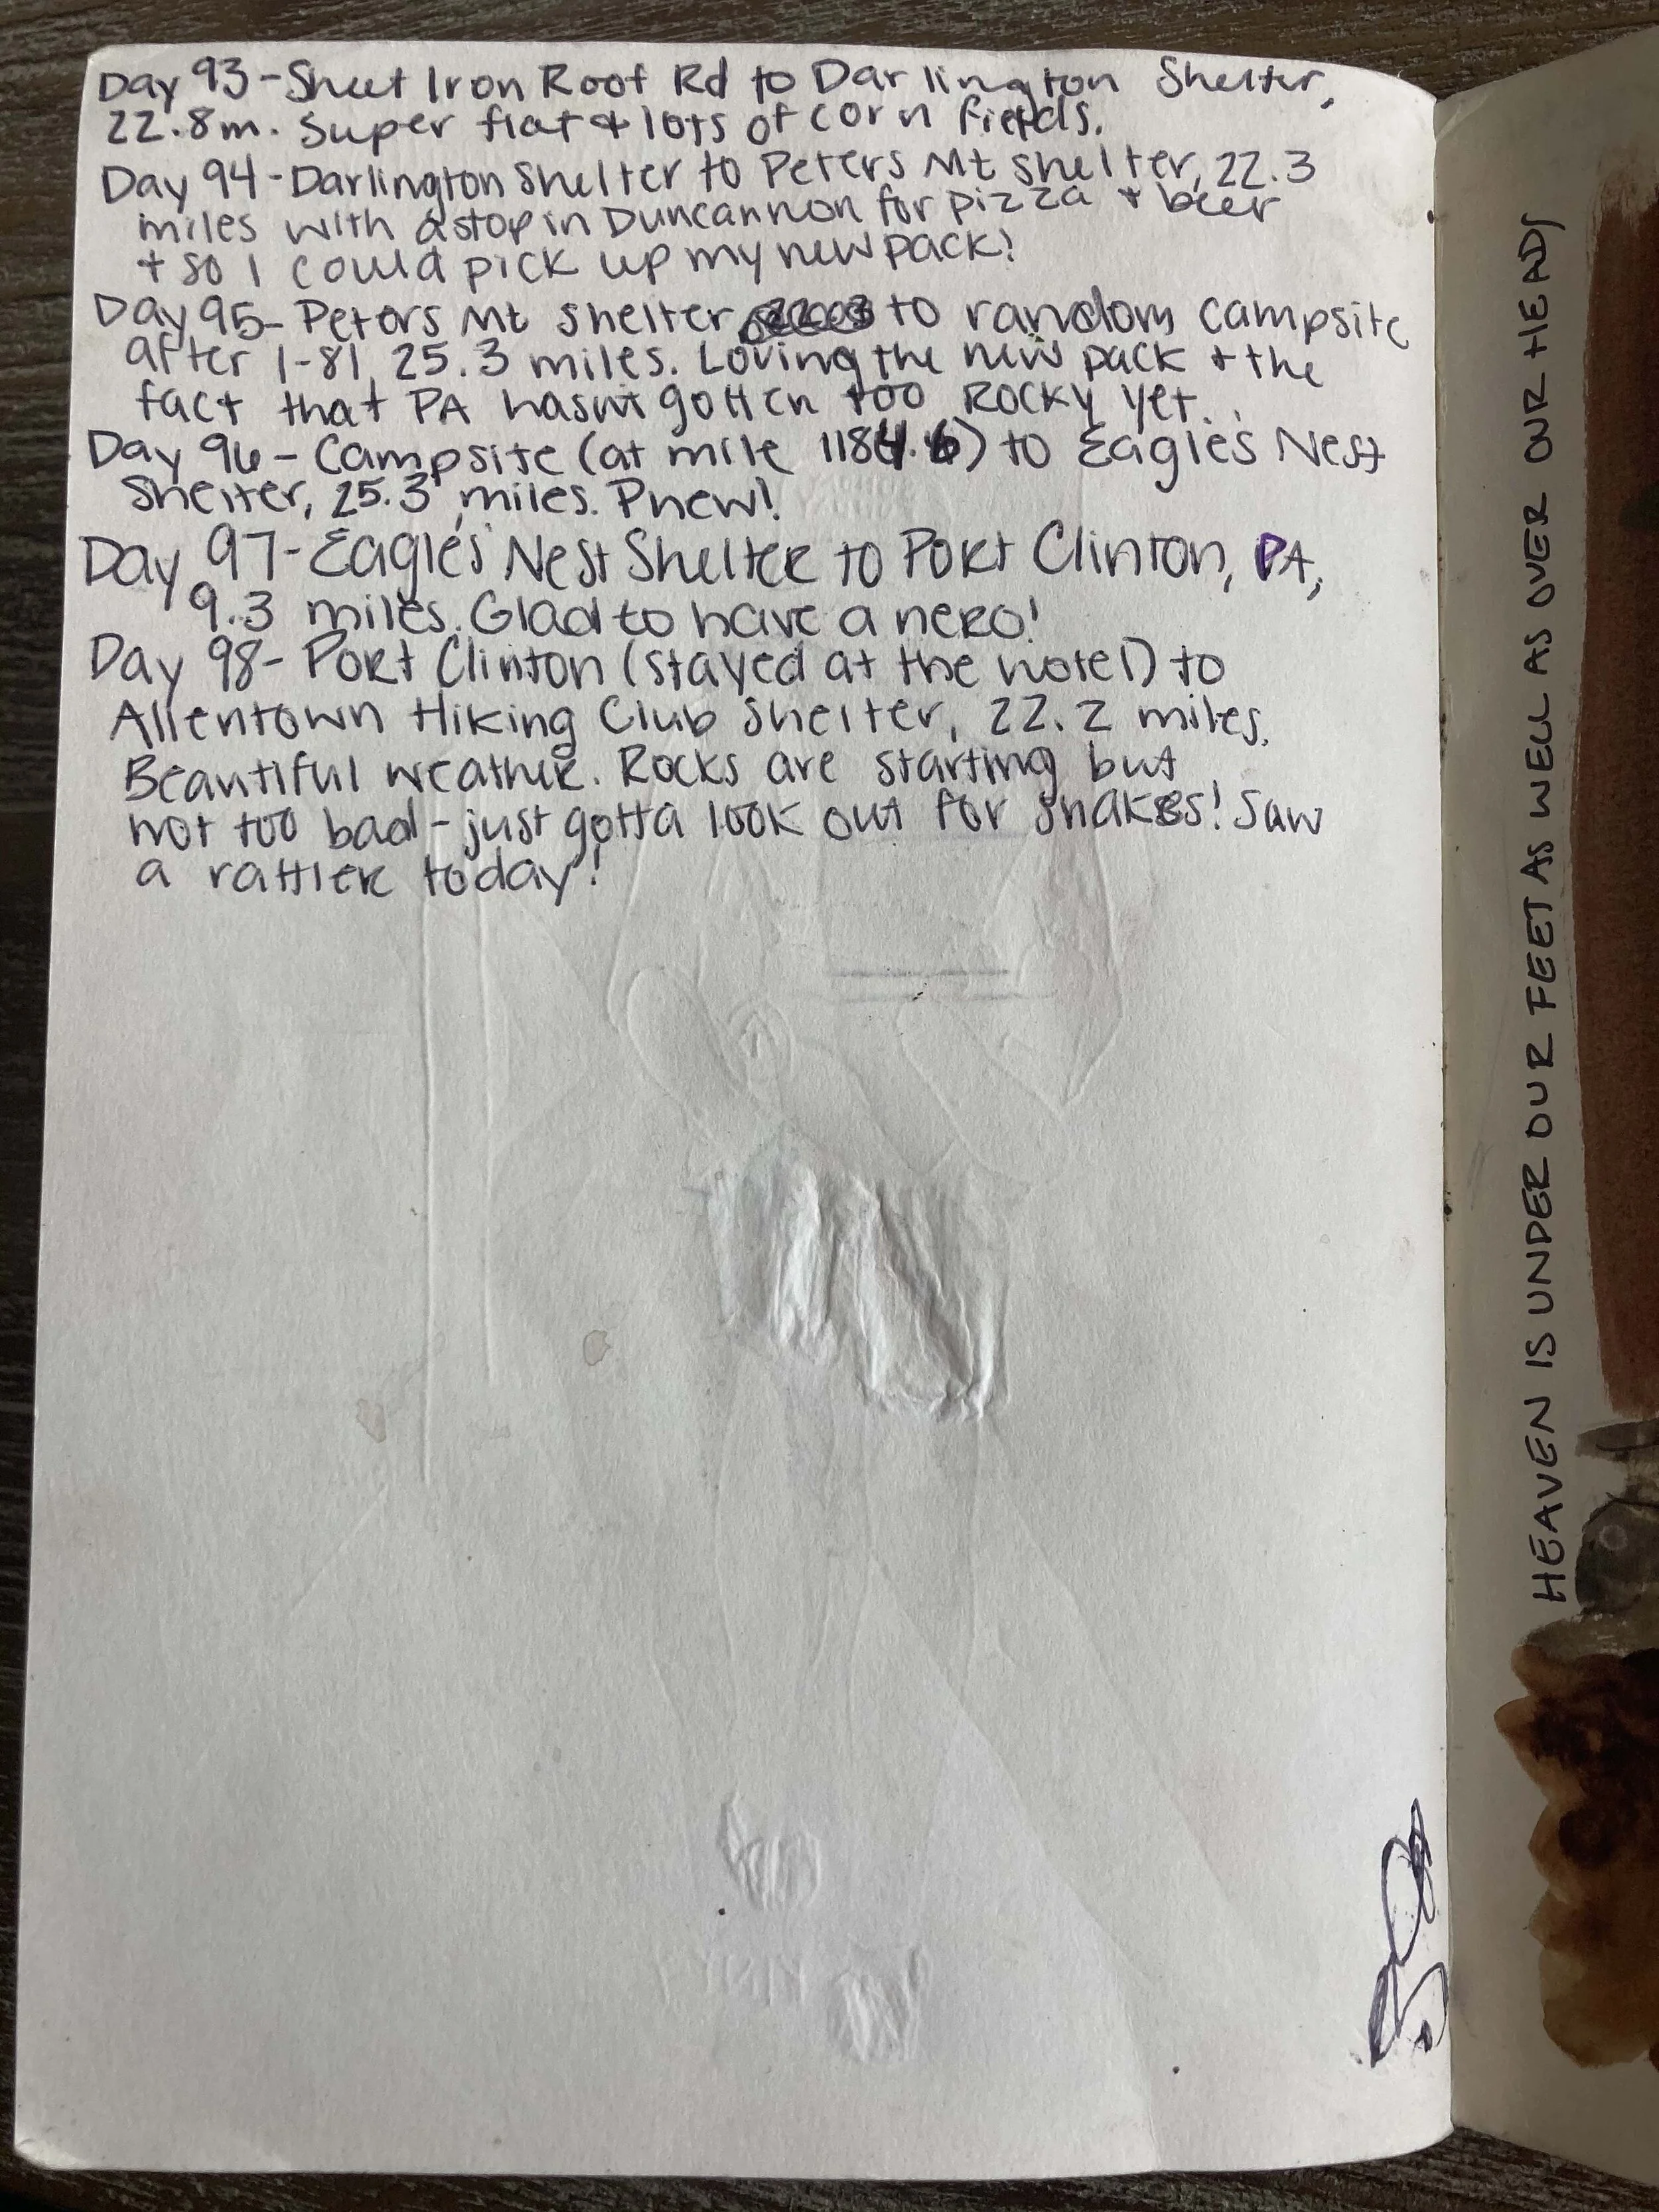 Day 93-Sheet Iron Roof Rd to Darlington Shelter,
22.8m. Super flat + lots of corn fields.
Day 94-Darlington Shelter to Peters Mt shelter, 22.3
miles with a stop in Duncannon for pizza + beer
+ so I could pick up my new pack!
Day 95- Peters Mt shelter to random campsite
after I-81, 25.3 miles. Loving the new pack + the
fact that PA hasn't gotten too Rocky yet...
Day 96- Campsite (at mile 1184.6) to Eagles Nest
Shelter, 25.3 miles. Phew!
Day 97-Eagles Nest Shelter to Port Clinton, PA,
9.3 miles. Glad to have a nero!
Day 98- Port Clinton (stayed at the hotel) to
Allentown Hiking Club Shelter, 22.2 miles.
Beautiful weather. Rocks are starting but
not too bad - just gotta look out for snakes! Saw
a rattler today!
HEAVEN IS UNDER OUR FEET AS WELL AS OVER OUR HEADS